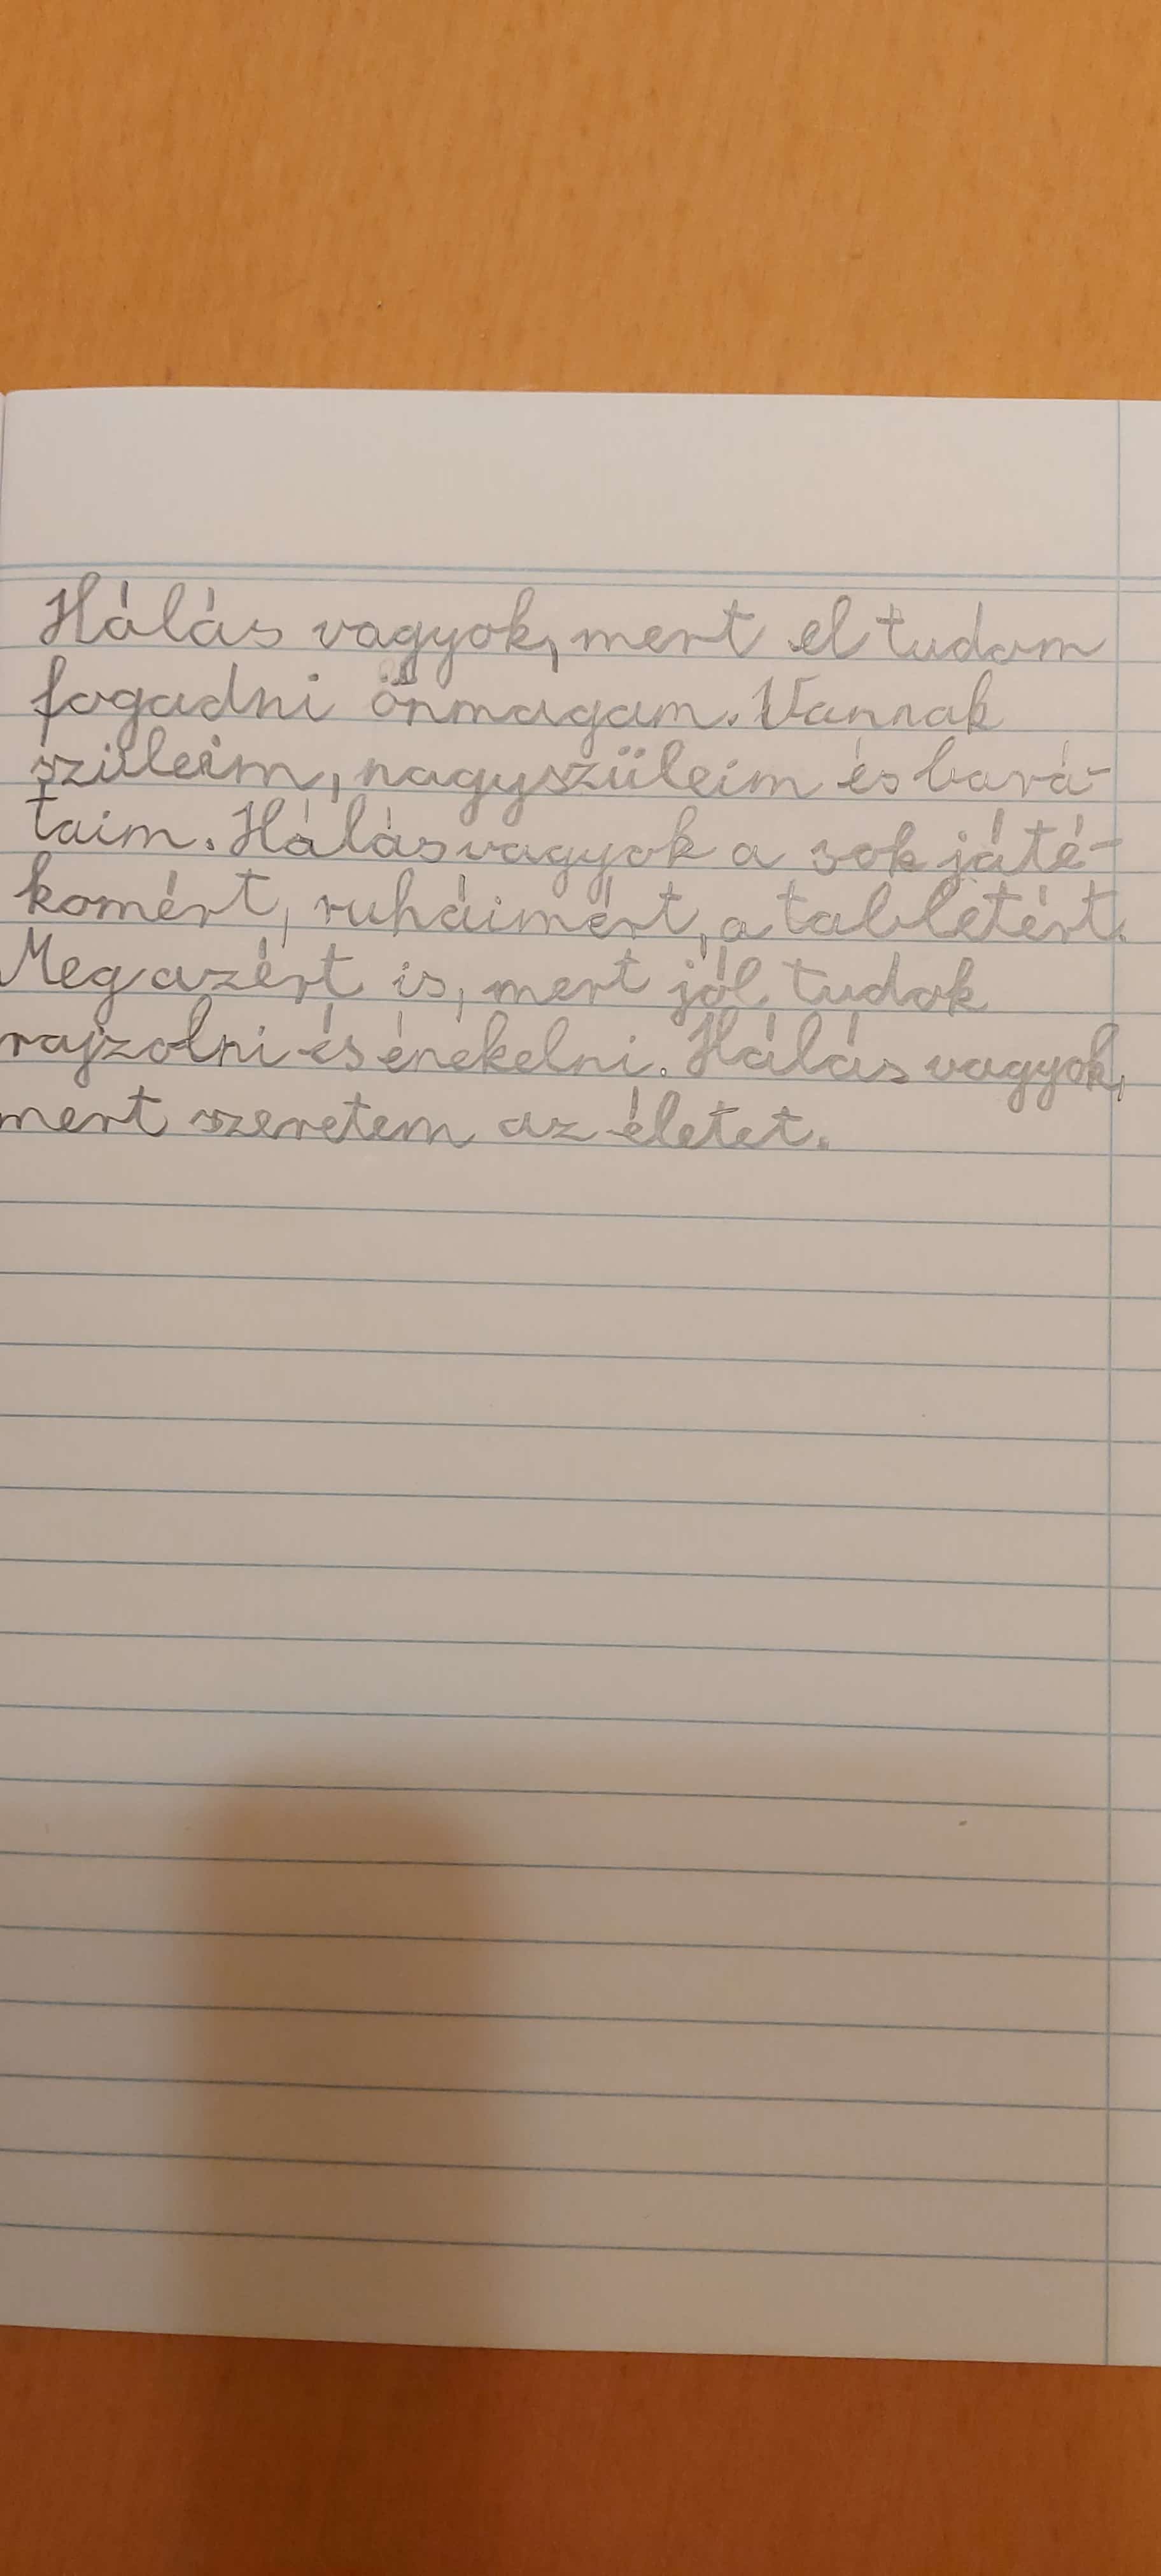 Hálás vagyok, mert el tudom
fogadni önmagam. Vannak
szüleim, nagyszüleim és bará-
taim. Hálás vagyok a sok játé-
komért, ruháimért, a tabletért.
Meg azért is, mert jól tudok
rajzolni és énekelni. Hálás vagyok,
mert szeretem az életet.